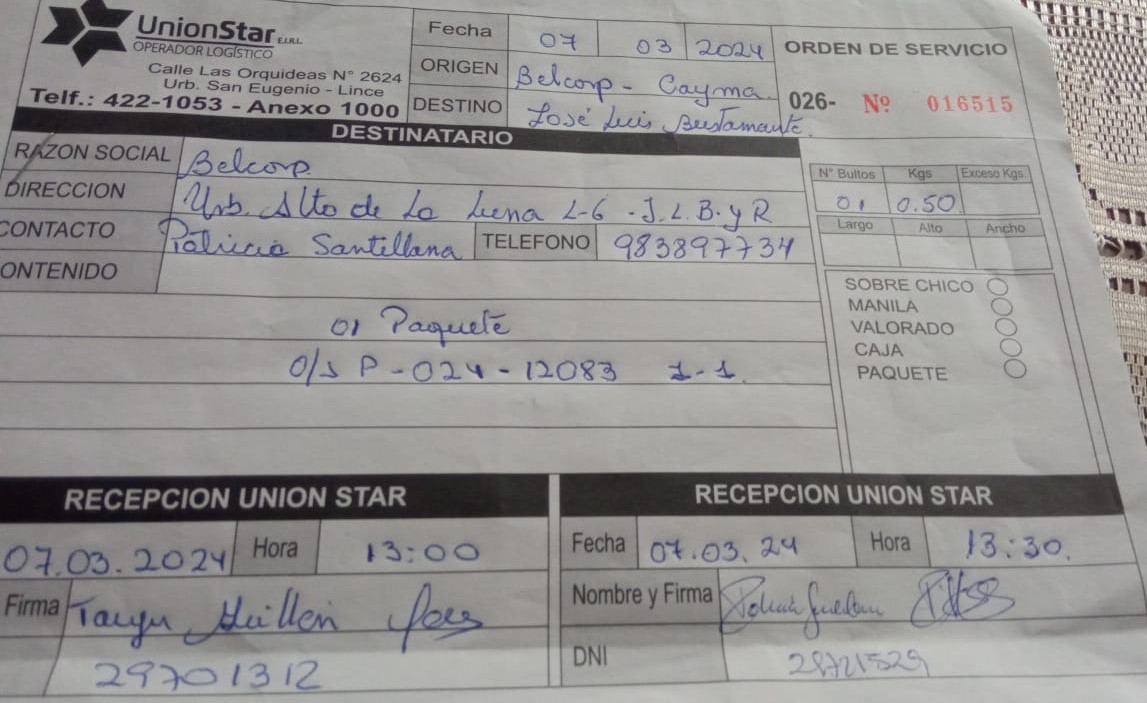 UnionStar E.I.R.L.
OPERADOR LOGÍSTICO
Calle Las Orquideas N° 2624
Urb. San Eugenio - Lince
Telf.: 422-1053 - Anexo 1000
Fecha 07 03 2024
ORIGEN Belcorp - Cayma.
DESTINO José Luis Bustamante.
ORDEN DE SERVICIO
026- Nº 016515
DESTINATARIO
RAZON SOCIAL Belcorp.
DIRECCION Urb. Alto de La Luna L-6 - J.L.B. y R
CONTACTO Patricia Santillana TELEFONO 983897734
ONTENIDO
01 Paquete
O/S P-024-12083 1-1.
N° Bultos Kgs Exceso Kgs.
01 0.50
Largo Alto Ancho
SOBRE CHICO
MANILA
VALORADO
CAJA
PAQUETE
RECEPCION UNION STAR
07.03.2024 Hora 13:00
Firma
29701312
RECEPCION UNION STAR
Fecha 07.03.24 Hora 13:30.
Nombre y Firma
DNI